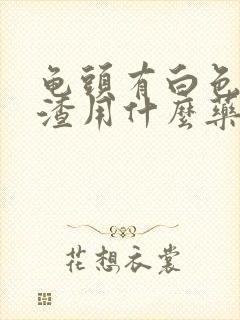 龟頭有白色
渣用什麼藥
花想衣裳